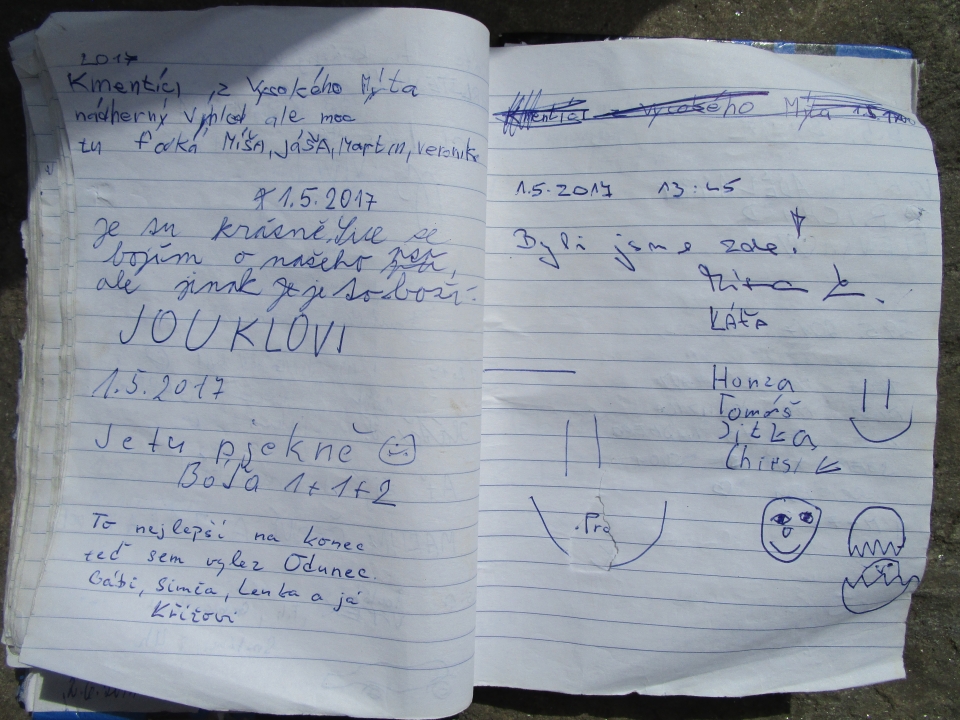 2017
Kmentíci z Vysokého Mýta
nádherný výhled ale moc
tu fouká MÍŠA, JÁŠA, Martin, Veronika
1.5.2017
je tu krásně. Sice se
bojím o našeho psa,
ale jinak je to boží.
JOUKLOVI
1.5.2017
Je tu pjekně
Boďa 1+1+2
To nejlepší na konec
teď sem vylez Odunec.
Gábi, Simča, Lenka a já
Křížovi
Kmentíci z Vysokého Mýta 1.5.
1.5.2017 13:45
Byli jsme zde!
KÁŤA
Honza
Tomáš
Jitka,
Chipsík
.Pro